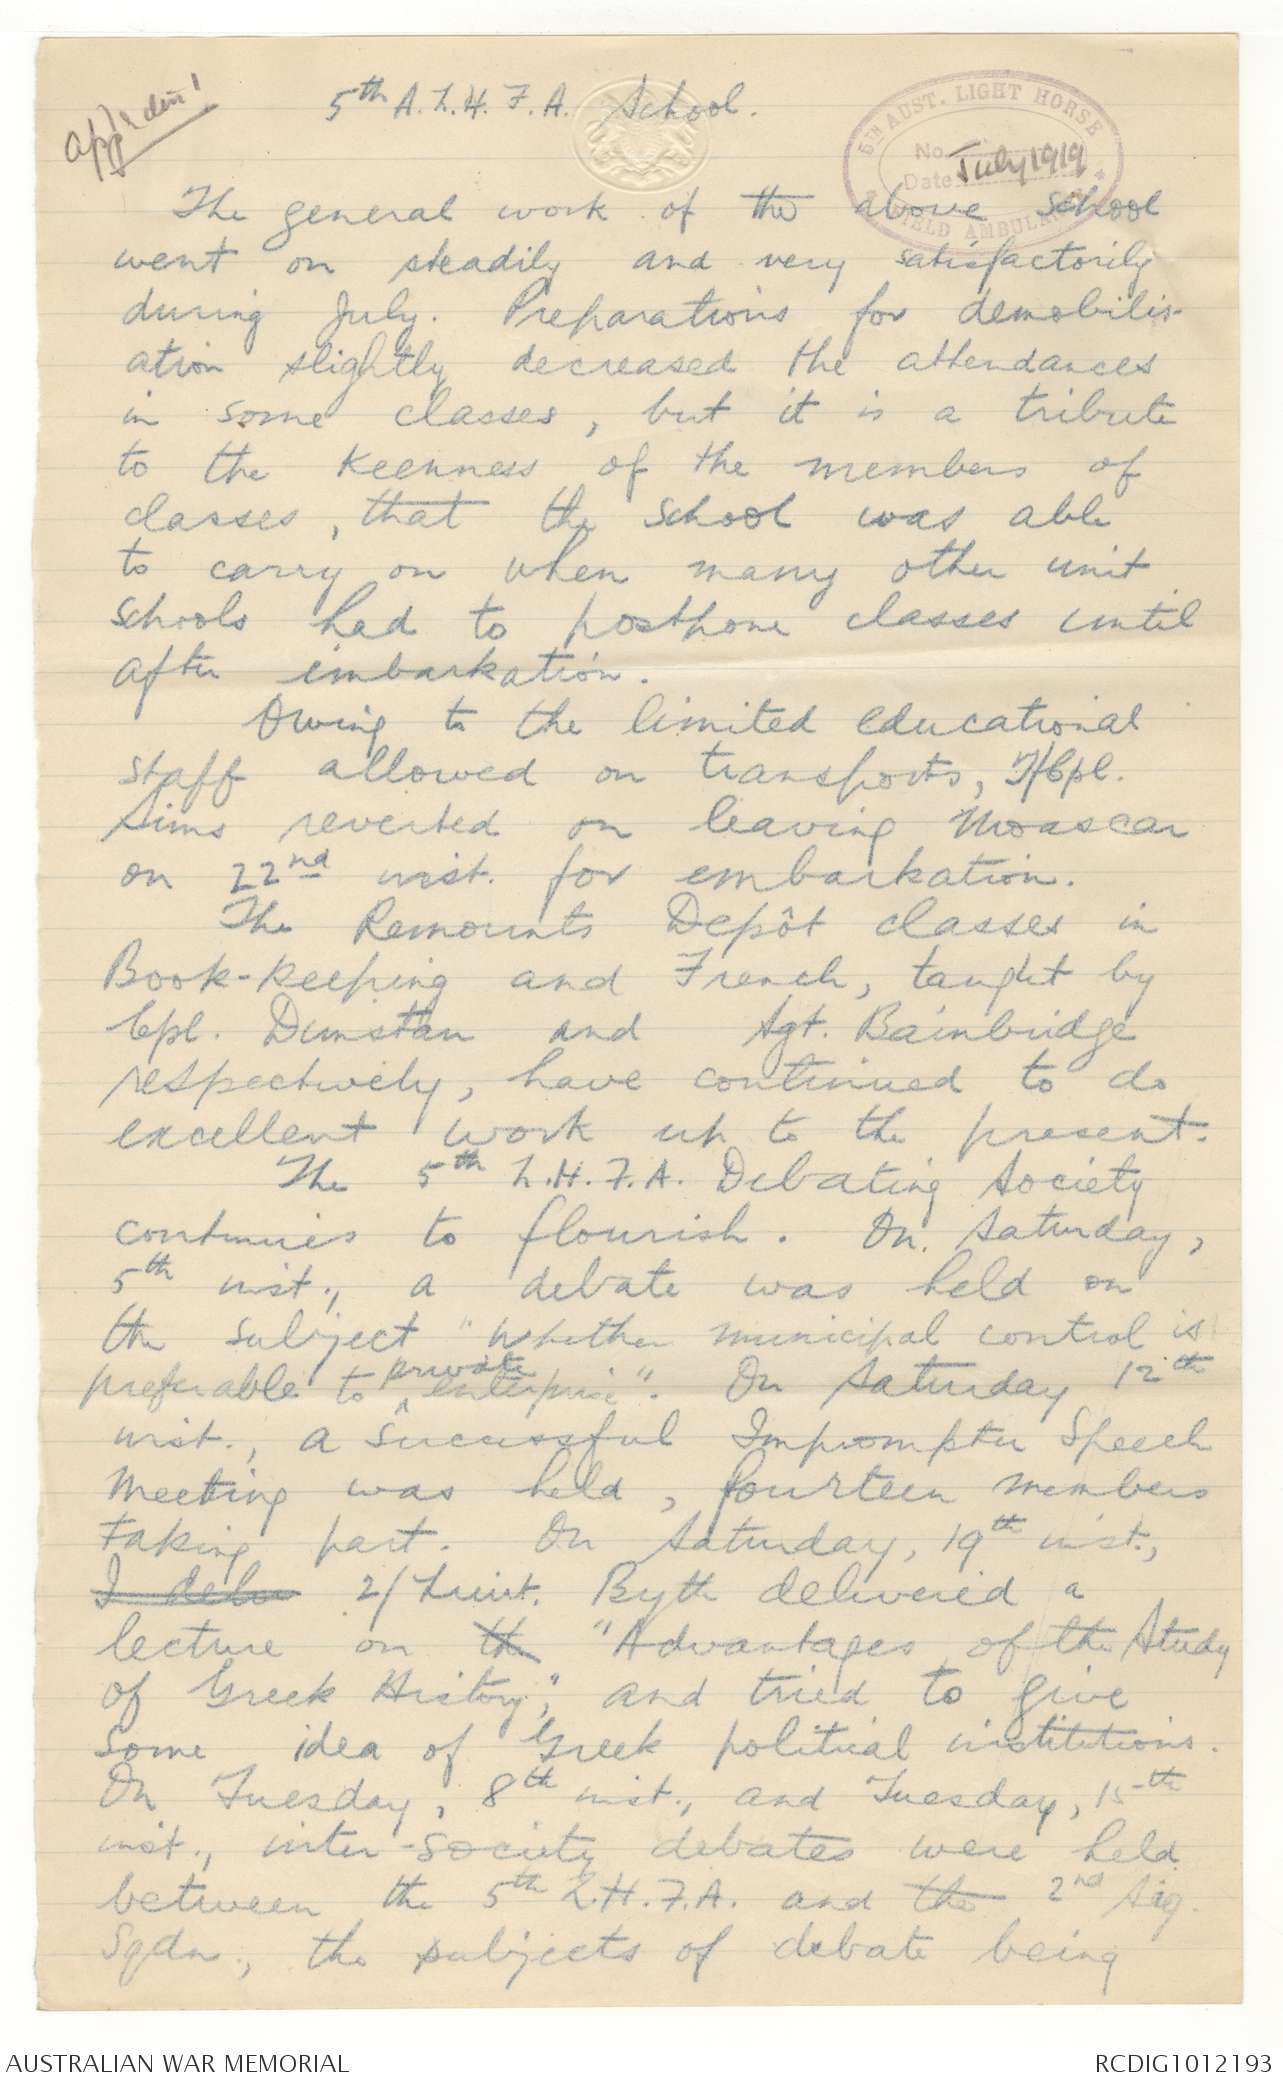 Appden 1
5th A.L.H.F.A. School.
5TH AUST. LIGHT HORSE
No.
Date July 1919
FIELD AMBULANCE
The general work of the above school
went on steadily and very satisfactorily
during July. Preparations for demobilis-
ation slightly decreased the attendances
in some classes, but it is a tribute
to the keenness of the members of
classes, that the school was able
to carry on when many other unit
schools had to postpone classes until
after embarkation.
Owing to the limited educational
staff allowed on transports, T/Cpl.
Sims reverted on leaving Moascar
on 22nd inst. for embarkation.
The Remounts Depôt classes in
Book-keeping and French, taught by
Cpl. Dunstan and Sgt. Bainbridge
respectively, have continued to do
excellent work up to the present.
The 5th L.H.F.A. Debating Society
continues to flourish. On Saturday,
5th inst., a debate was held on
the subject "Whether municipal control is
preferable to private enterprise". On Saturday 12th
inst., a successful Impromptu Speech
Meeting was held, fourteen members
taking part. On Saturday, 19th inst.,
I deliv 2/Lieut. Byth delivered a
lecture on the "Advantages of the Study
of Greek History", and tried to give
some idea of Greek political institutions.
On Tuesday, 8th inst., and Tuesday, 15th
inst., inter-society debates were held
between the 5th L.H.F.A. and the 2nd Sig.
Sqdn., the subjects of debate being
AUSTRALIAN WAR MEMORIAL
RCDIG1012193